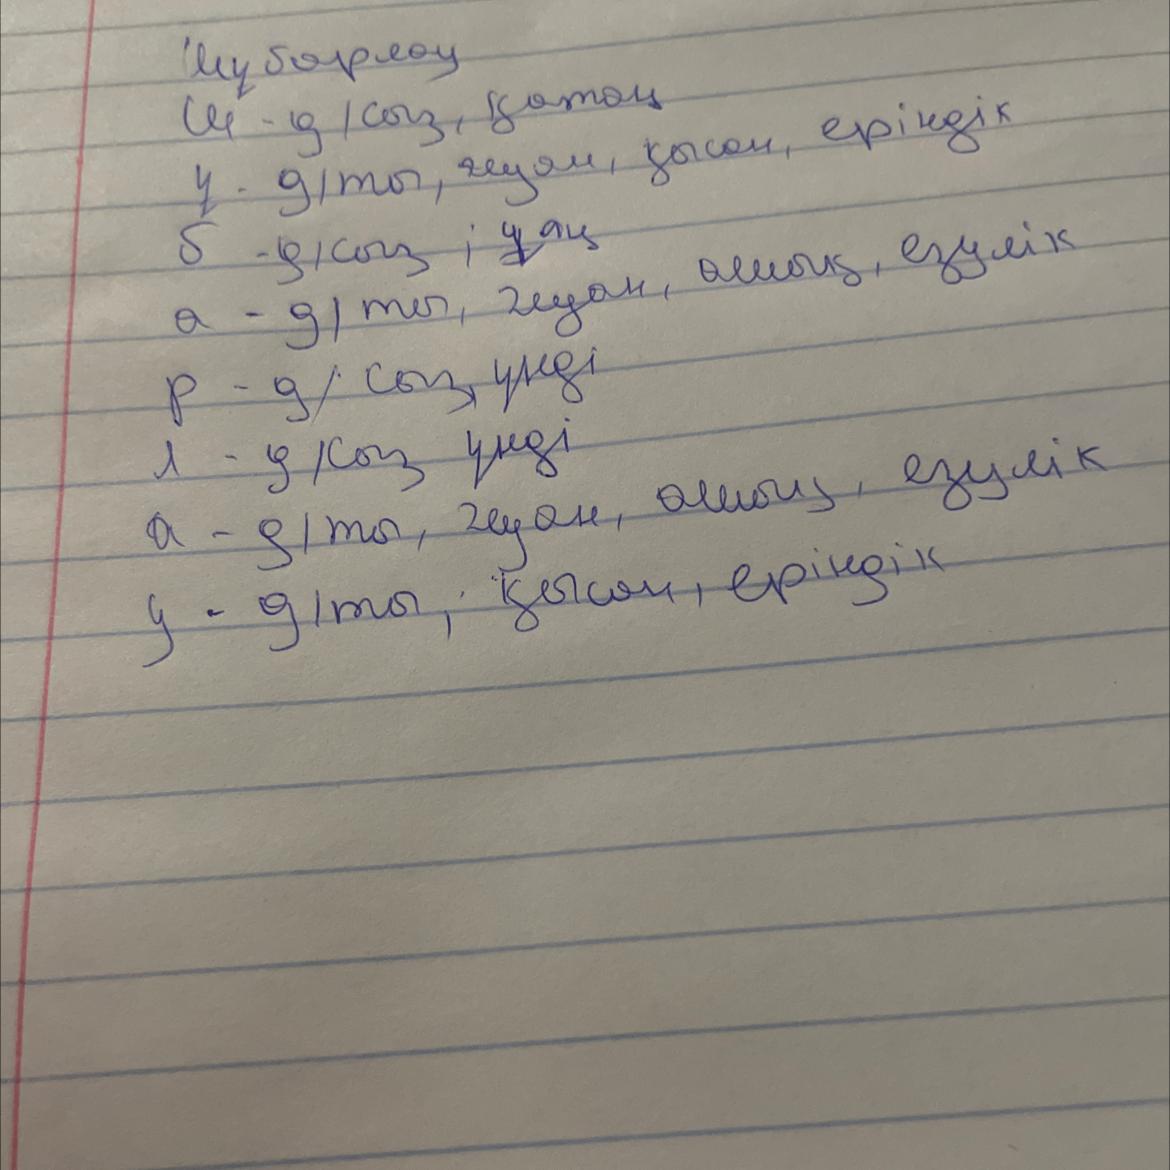 Шубарлау
Ш - д/сыз, қатаң
у - д/ты, жуан, қысаң, еріндік
б - д/сыз, ұяң
а - д/ты, жуан, ашық, езулік
р - д/сыз, үнді
л - д/сыз үнді
а - д/ты, жуан, ашық, езулік
у - д/ты, қысаң, еріндік